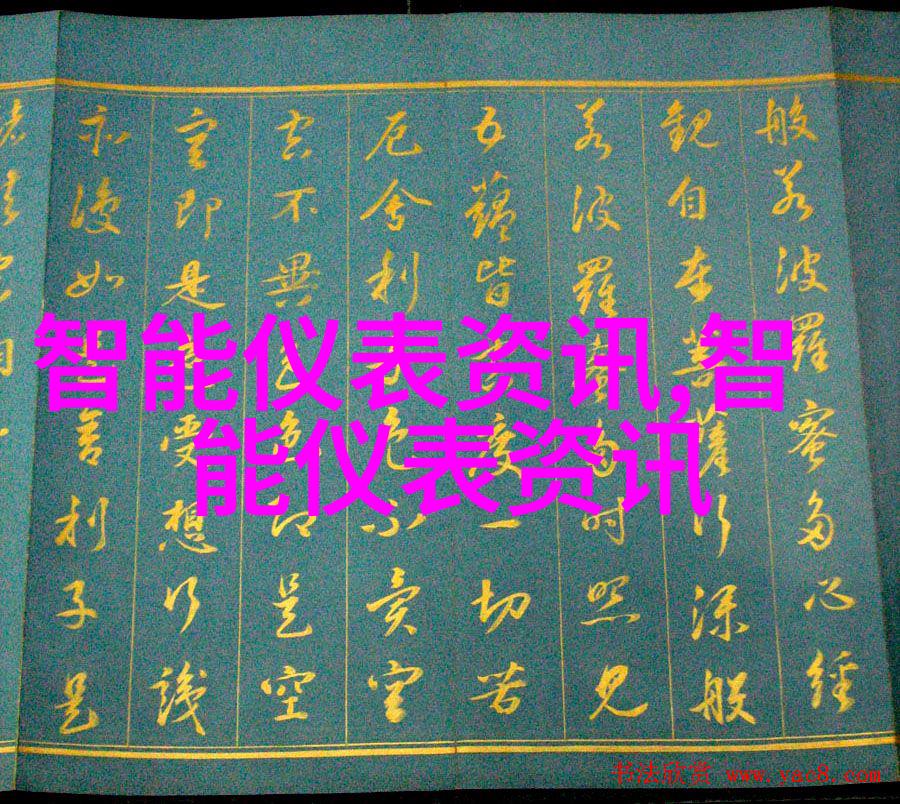 般若波羅蜜多心經
觀自在菩薩行深般
若波羅蜜多時照見
五蘊皆空度一切苦
厄舍利子色不異空
空不異色色即是空
空即是色受想行識
亦復如是舍利子是
智能仪表资讯,智
能仪表资讯
书法欣赏 www.yac8.com